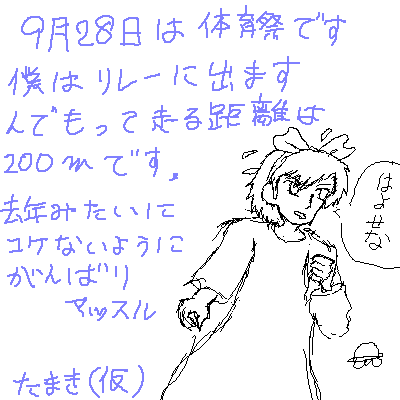 9月28日は体育祭です
僕はリレーに出ます
んでもって走る距離は
200mです。
去年みたいに
コケないように
がんばり
マッスル
たまき(仮)
はよせな